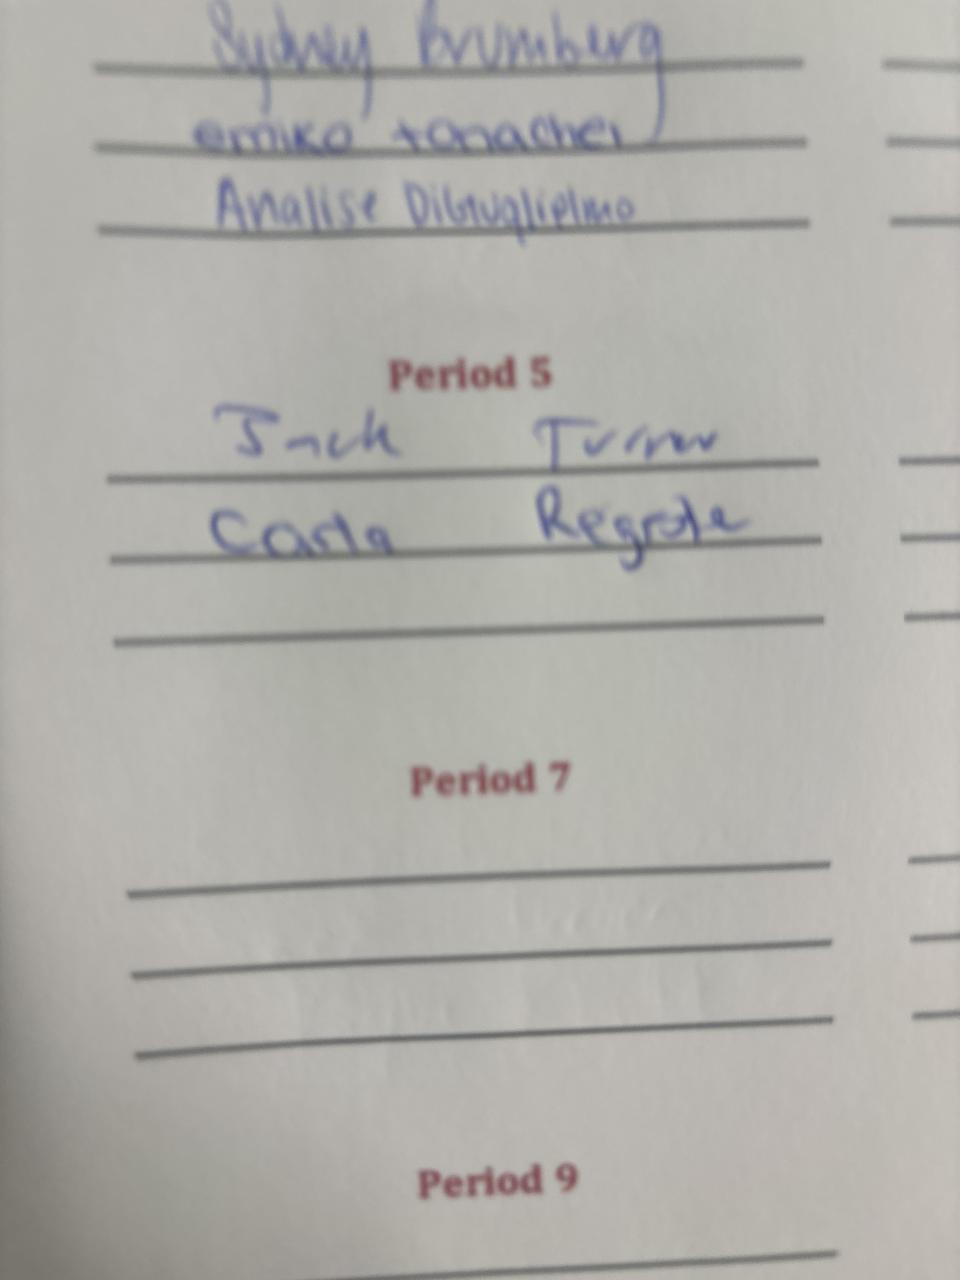 Sydney Brumberg
emiko tanachei
Analise DiGiuglielmo
Period 5
Jack Turner
Carla
Period 7
Period 9